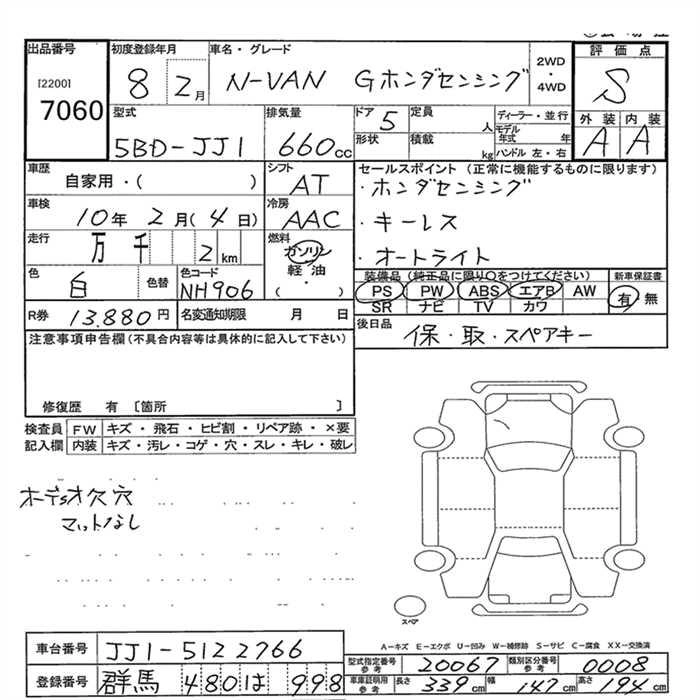 出品番号 初度登録年月 車名・グレード 2WD・4WD 評価点
[2200] 7060 8 2月 N-VAN Gホンダセンシング S
型式 排気量 ドア 定員 ディーラー・並行 外装 内装
5BD-JJ1 660cc 5 人 モデル年式 年 A A
形状 積載 kg ハンドル 左・右
車歴 シフト セールスポイント (正常に機能するものに限ります)
自家用・( ) AT ・ホンダセンシング
車検 冷房
10年 2月(4日) AAC ・キーレス
走行 燃料
万 千 2km ガソリン 軽油 ・ ( ) ・オートライト
色 色替 色コード 装備品(純正品に限り○をつけてください) 新車保証書
白 NH906 PS PW ABS エアB AW 有・無
SR ナビ TV カワ
R券 13.880円 名変通知期限 月 日 後日品
保・取・スペアキー
注意事項申告欄(不具合内容等は具体的に記入して下さい)
修復歴 有 〔箇所 〕
検査員 FW キズ・飛石・ヒビ割・リペア跡・×要
記入欄 内装 キズ・汚レ・コゲ・穴・スレ・キレ・破レ
オーディオ欠穴
マットなし
スペア
A-キズ E-エクボ U-凹み W-補修跡 S-サビ C-腐食 XX-交換済
車台番号 JJ1-5122766
型式指定番号 参考 20067 類別区分番号 参考 0008
登録番号 群馬 480 は 998
車庫証明用 参考 長さ 339cm 幅 147cm 高さ 194cm